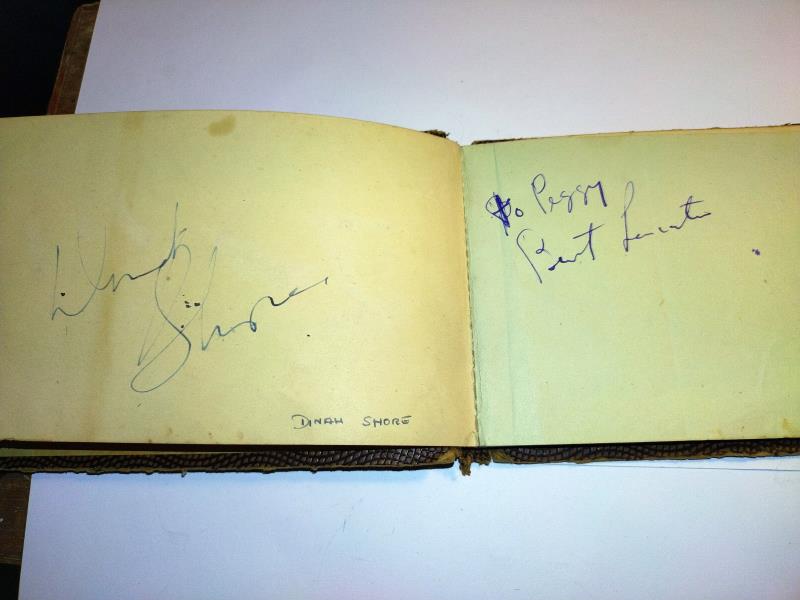 Dinah
Shore
DINAH SHORE
To Peggy
Burt Lancaster